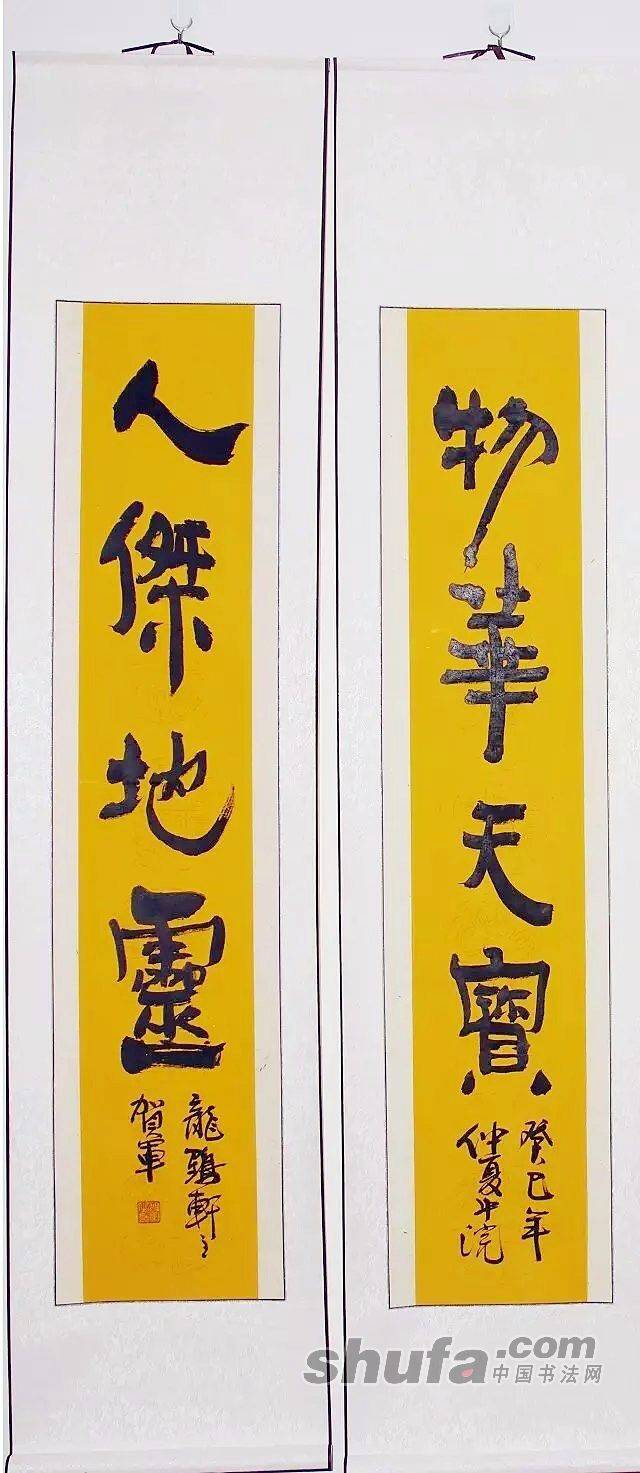 物華天寶
癸巳年
仲夏
人傑地靈
龍鵝軒主
賀軍
shufa.com
中国书法网